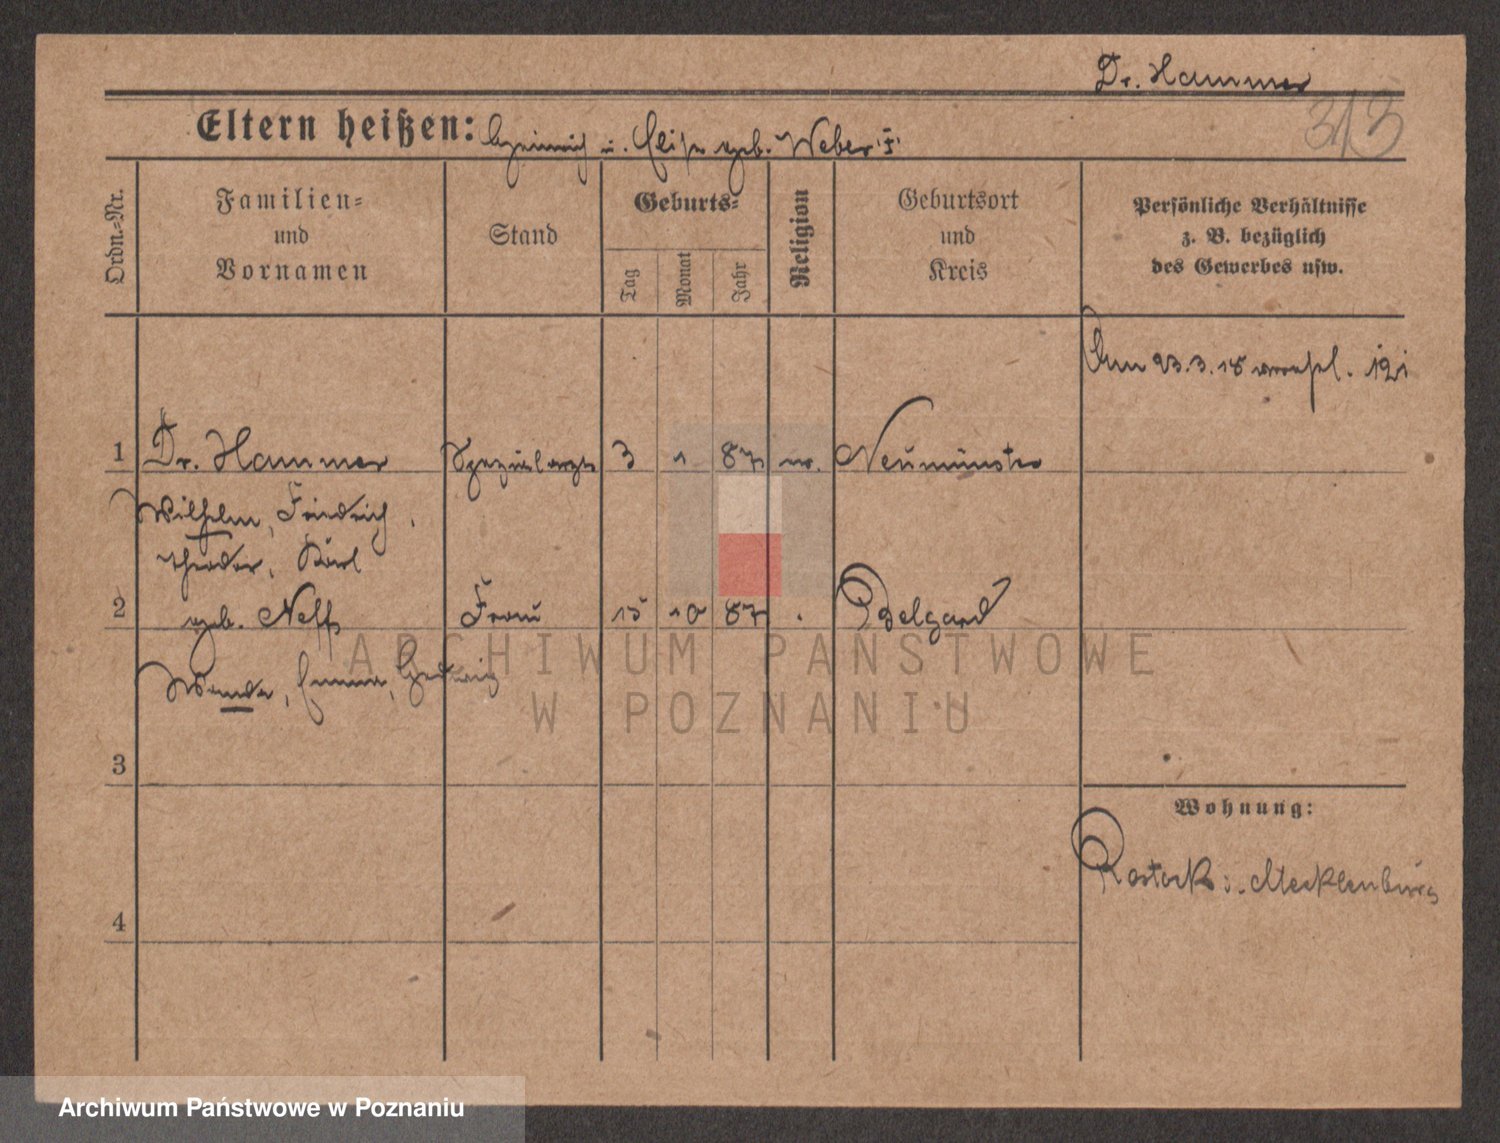 Dr. Hammer
313
Eltern heißen: Heinrich u. Elise geb. Weber
Ordn.-Nr.
Familien-
und
Vornamen
Stand
Geburts-
Tag
Monat
Jahr
Religion
Geburtsort
und
Kreis
Persönliche Verhältnisse
z. B. bezüglich
des Gewerbes usw.
23.3.18
1 Dr. Hammer Spezialarzt 3 1 87 Neumünster
Wilhelm, Friedrich,
Theodor, Karl
2 geb. Neff Frau 15 10 87 Belgard
Wanda, Emma, Hedwig
3
Wohnung:
Rostock i. Mecklenburg
4
ARCHIWUM PAŃSTWOWE
W POZNANIU
Archiwum Państwowe w Poznaniu